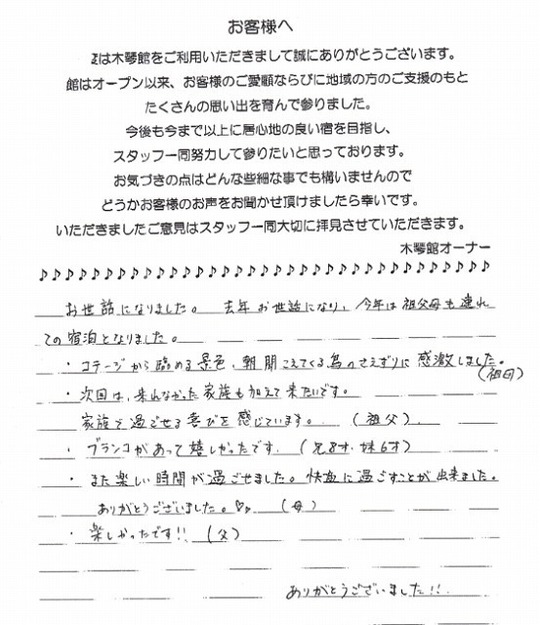 お客様へ
は木琴館をご利用いただきまして誠にありがとうございます。
館はオープン以来、お客様のご愛顧ならびに地域の方のご支援のもと
たくさんの思い出を育んで参りました。
今後も今まで以上に居心地の良い宿を目指し、
スタッフ一同努力して参りたいと思っております。
お気づきの点はどんな些細な事でも構いませんので
どうかお客様のお声をお聞かせ頂けましたら幸いです。
いただきましたご意見はスタッフ一同大切に拝見させていただきます。
木琴館オーナー
♪♪♪♪♪♪♪♪♪♪♪♪♪♪♪♪♪♪♪♪♪♪♪♪♪♪♪♪♪♪♪♪♪♪
お世話になりました。 去年お世話になり、今年は祖父母も連れ
ての宿泊となりました。
・コテージから臨める景色、朝聞こえてくる鳥のさえずりに感激しました。
(祖母)
・次回は、来れなかった家族も加えて来たいです。
家族で過ごせる喜びを感じています。 (祖父)
・ブランコがあって嬉しかったです。(兄8才・妹6才)
・また楽しい時間が過ごせました。快適に過ごすことが出来ました。
ありがとうございました。♡♡ (母)
・楽しかったです!! (父)
ありがとうございました!!